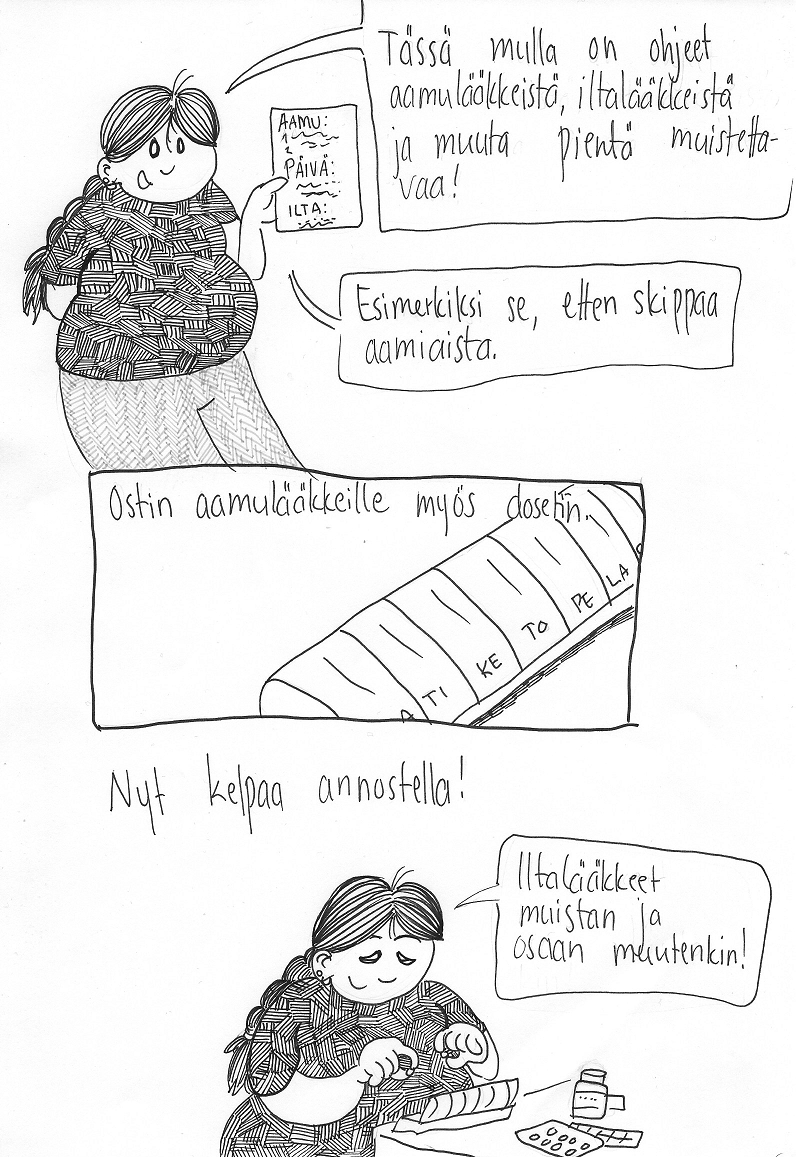 Tässä mulla on ohjeet
aamulääkkeistä, iltalääkkeistä
ja muuta pientä muistetta-
vaa!
AAMU:
PÄIVÄ:
ILTA:
Esimerkiksi se, etten skippaa
aamiaista.
Ostin aamulääkkeille myös dosetin.
A TI KE TO PE LA
Nyt kelpaa annostella!
Iltalääkkeet
muistan ja
osaan muutenkin!